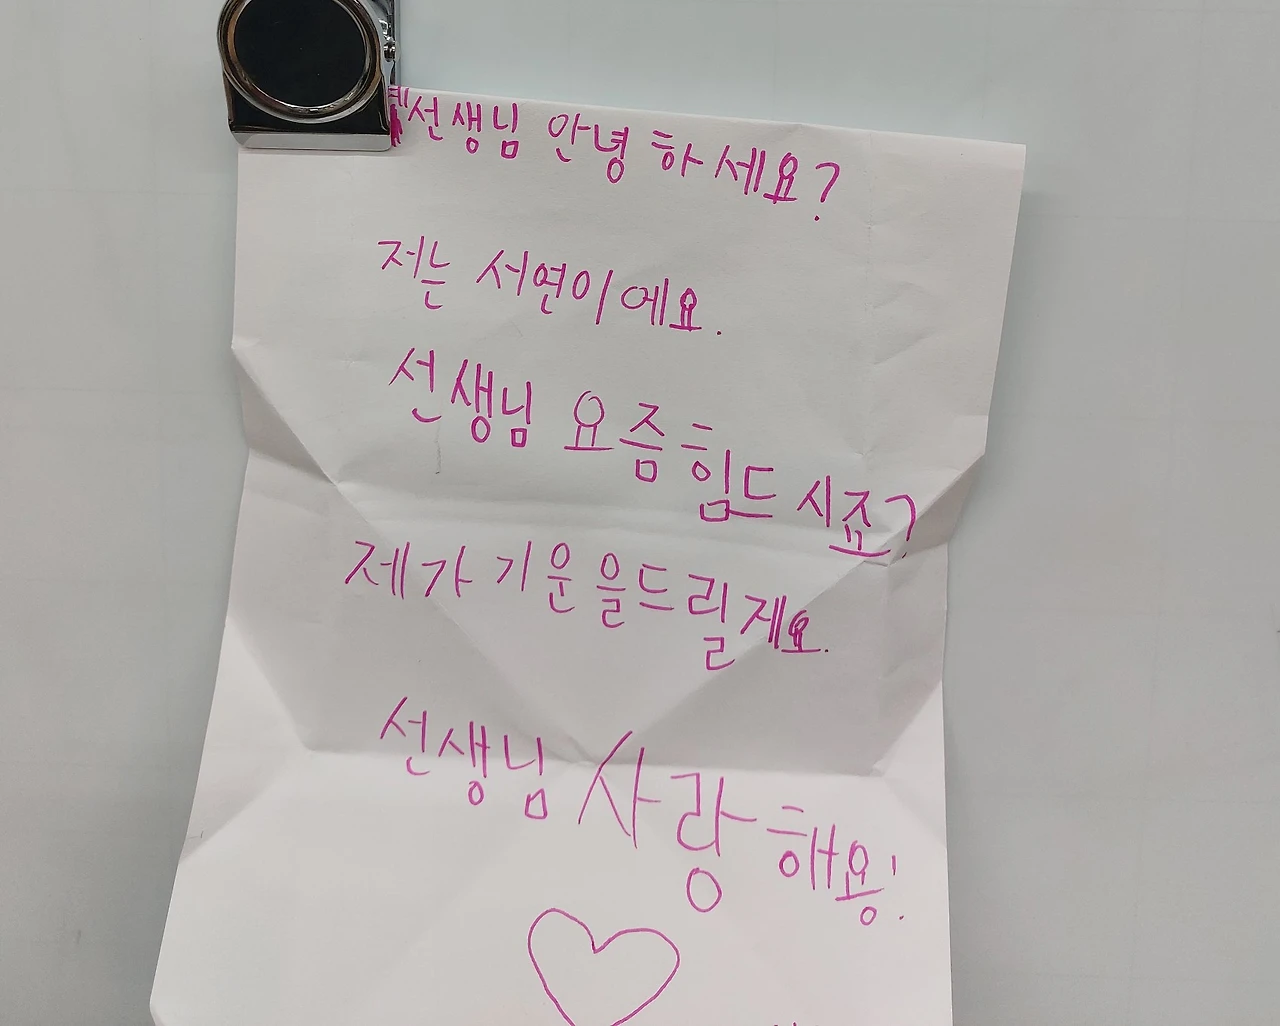 선생님 안녕하세요?
저는 서연이에요.
선생님 요즘 힘드시죠?
제가 기운을 드릴게요.
선생님 사랑해용!